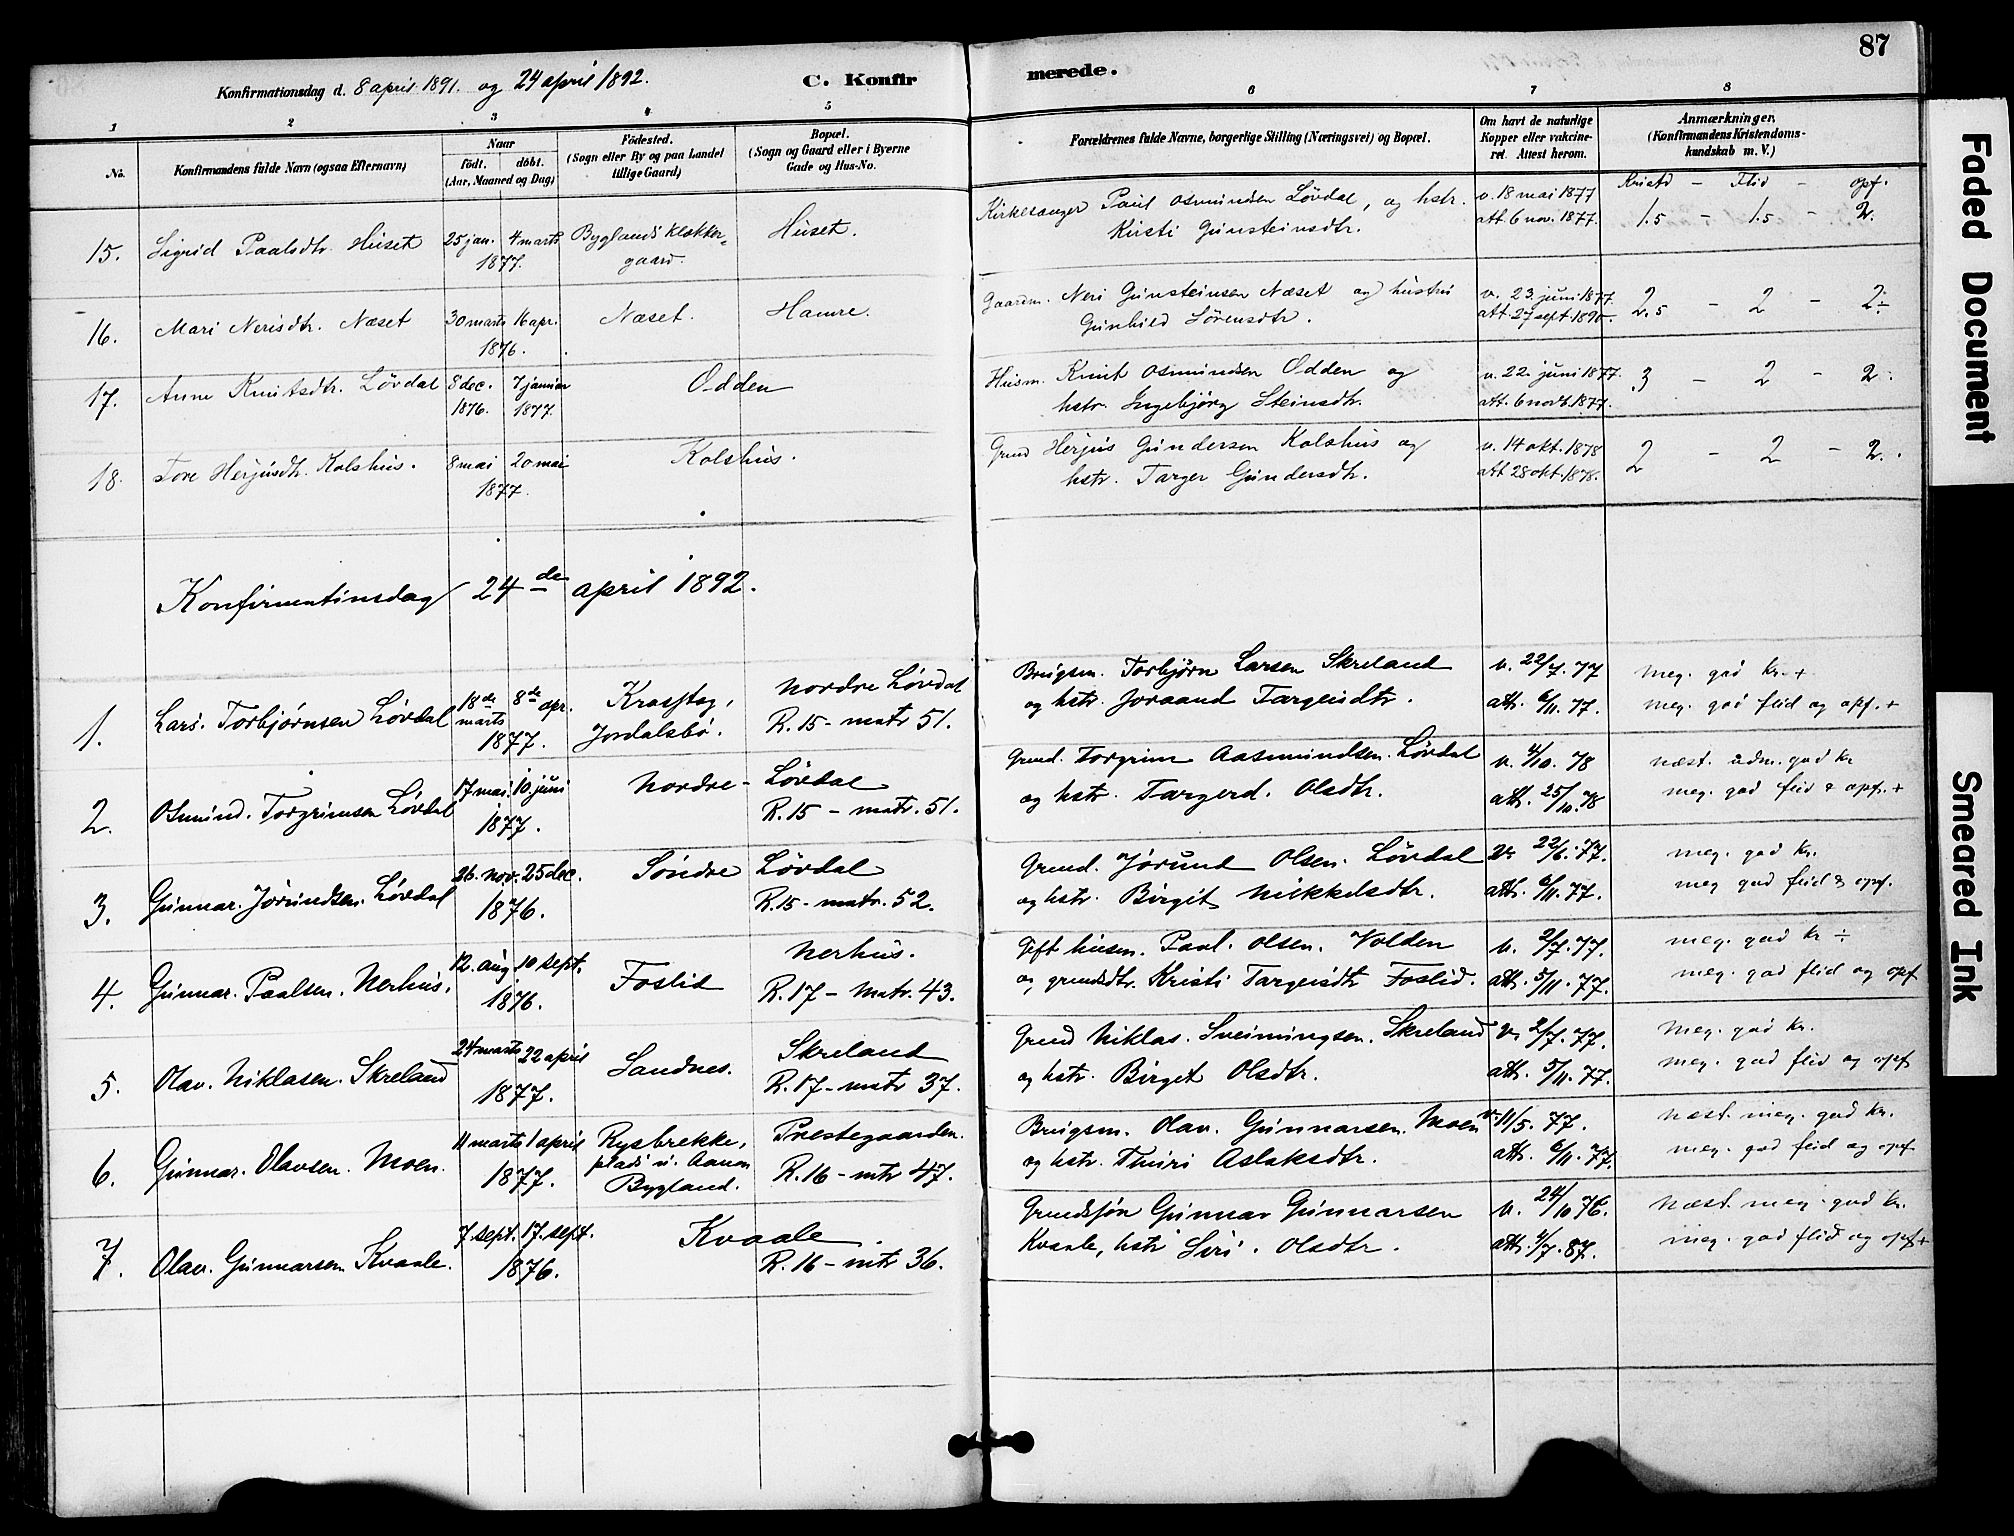 87
Konfirmationsdag d. 8 april 1891. og 24 april 1892.
C. Konfir
merede.
1 2 3 4 5 6 7 8
No.
Konfirmandens fulde Navn (ogsaa Efternavn)
Naar
födt. döbt.
(Aar, Maaned og Dag)
Födested.
(Sogn eller By og paa Landet
tillige Gaard)
Bopæl.
(Sogn og Gaard eller i Byerne
Gade og Hus-No.
Forældrenes fulde Navne, borgerlige Stilling (Næringsvei) og Bopæl.
Om havt de naturlige
Kopper eller vakcine-
ret. Attest herom.
Anmærkninger.
(Konfirmandens Kristendoms-
kundskab m. V.)
Kristd – Flid – opf.
15. Sigrid Paalsdtr. Huset
25 jan. 4 marts
1877.
Byglands klokker-
gaard.
Huset.
Kirkesanger Paul Osmundsen Lövdal, og hstr.
Kirsti Gunsteinsdtr.
v. 18 mai 1877
att. 6 nov. 1877.
1.5 – 1.5 – 2.
16. Mari Nerisdtr. Næset
30 marts 16 apr.
1876.
Næset.
Hamre.
Gaardm. Neri Gunsteinsen Næset og hustru
Gunhild Sörensdtr.
v. 23. juni 1877.
att. 27 sept. 1890.
2.5 – 2 – 2÷
17. Anne Knutsdtr. Lövdal
8 dec. 7 januar
1876. 1877.
Odden
Husm. Knut Osmundsen Odden og
hstr. Ingebjörg Steinsdtr.
v. 22. juni 1877.
att. 6 novb. 1877.
3 – 2 – 2.
18. Tore Herjusdtr. Kolshus.
8 mai 20 mai
1877.
Kolshus.
Grund Herjus Gundersen Kolshus og
hstr. Targer Gundersdtr.
v. 14 okt. 1878
att 28 okt. 1878.
2 – 2 – 2.
Konfirmationsdag 24de april 1892.
1. Lars. Torbjørnsen Løvdal
18de marts 8de apr.
1877.
Jordalsbø.
Nordre Løvdal
R. 15 – matr 51.
Brugsm. Torbjørn Larsen Skreland
og hstr. Joraand Targeisdtr.
v. 22/7. 77
att. 6/11. 77.
meg. god kr. +
meg. god flid og opf. +
2. Osmund. Torgrimsen Løvdal
17 mai. 10 juni
1877.
Nordre – Løvdal
R. 15 – matr. 51.
Grund. Torgrim Aasmundsen. Løvdal
og hstr. Targerd. Olsdtr.
v. 4/10. 78
att. 25/10. 78
næst. udm. god kr
meg. god flid & opf. +
3. Gunnar. Jørundsen. Løvdal
26. nov. 25 dec.
1876.
Söndre Løvdal
R. 15 – matr. 52.
Grund. Jørund Olsen. Løvdal
og hstr. Birgit Mikkelsdtr.
v. 22/6. 77.
att. 6/11. 77.
meg. god kr.
meg god flid & opf.
4. Gunnar. Paalsen. Nerhus.
12. aug. 10 sept.
1876.
Foslid
Nerhus.
R. 17 – Matr. 43.
Gift husm. Paul. Olsen. Volden
og grundsdtr. Kristi Targeisdtr Foslid.
v. 2/7. 77.
att. 5/11. 77.
meg. god kr ÷
meg. god flid og opf
5. Olav. Niklasen. Skreland
24 marts 22 april
1877.
Sandnes.
Skreland
R. 17 – matr 37.
Grund Niklas. Sveinungsen. Skreland
og hstr. Birgit Olsdtr.
v. 2/7. 77.
att. 5/11. 77.
Meg. god kr.
meg. god flid og opf
6. Gunnar. Olavsen. Moen.
11 marts 1 april
1877.
Rysbrekke,
plads u. Aanen
Bygland.
Prestegaarden.
R. 16 – mtr 47.
Brugsm. Olav. Gunnarsen. Moen
og hstr. Thuri Aslaksdtr.
v. 11/5. 77.
att. 6/11. 77.
Næst. meg. god kr.
meg. god flid og opf
7. Olav. Gunnarsen Kvaale.
7 sept. 17. sept.
1876.
Kvaale.
R. 16 – mtr 36.
Grundsjön Gunnar Gunnarsen
Kvaale, hstr Siri. Olsdtr.
v. 24/10 76.
att. 4/7. 87.
Næst. meg. god kr.
meg. god flid og opf +
Faded Document
Smeared Ink